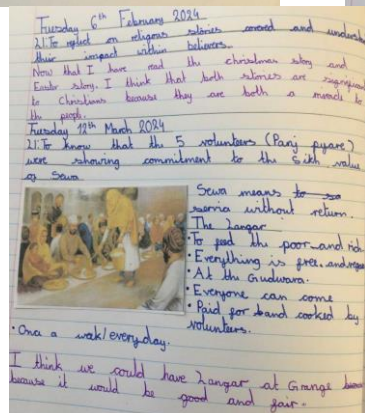 Tuesday 6th February 2024
LI: To reflect on religous stories covered and understand
their impact within believers.
Now that I have read the christmas story and
Easter story. I think that both stories are significant
to Christians because they are both a miracle to
the people.
Tuesday 12th March 2024
LI: To know that the 5 volunteers (Panj pyare)
were showing commitment to the Sikh value
of Sewa.
Sewa means to
service without return.
The Langar
• To feed the poor and rich
• Everything is free and
• At the Gudwara.
• Everyone can come
• Paid for and cooked by
volunteers.
• Once a week/everyday.
I think we could have Langar at Grange
because it would be good and fair.